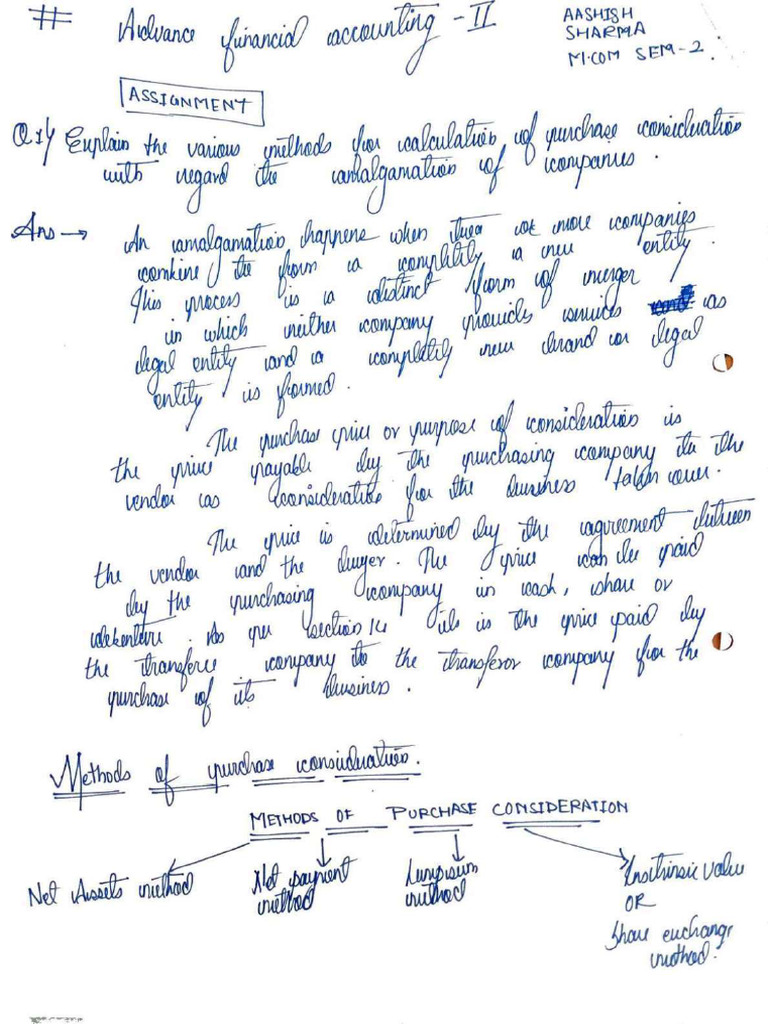 # Advance financial accounting - II
AASHISH
SHARMA
M.COM SEM-2.
ASSIGNMENT
Q.1) Explain the various methods for calculation of purchase consideration
with regard the amalgamation of companies.
Ans → An amalgamation happens when two or more companies
combine the form a completely a new entity.
This process is a distinct form of merger
in which neither company provides services as
legal entity and a completely new brand or legal
entity is formed.
The purchase price or purpose of consideration is
the price payable by the purchasing company to the
vendor as consideration for the business taken over.
The price is determined by the agreement between
the vendor and the buyer. The price can be paid
by the purchasing company in cash, share or
debenture. As per section 14 it is the price paid by
the transferee company to the transferor company for the
purchase of its business.
Methods of purchase consideration.
METHODS OF PURCHASE CONSIDERATION
Net Assets method
Net payment
method
Lumpsum
method
Insitrinsic value
OR
Share exchange
method.